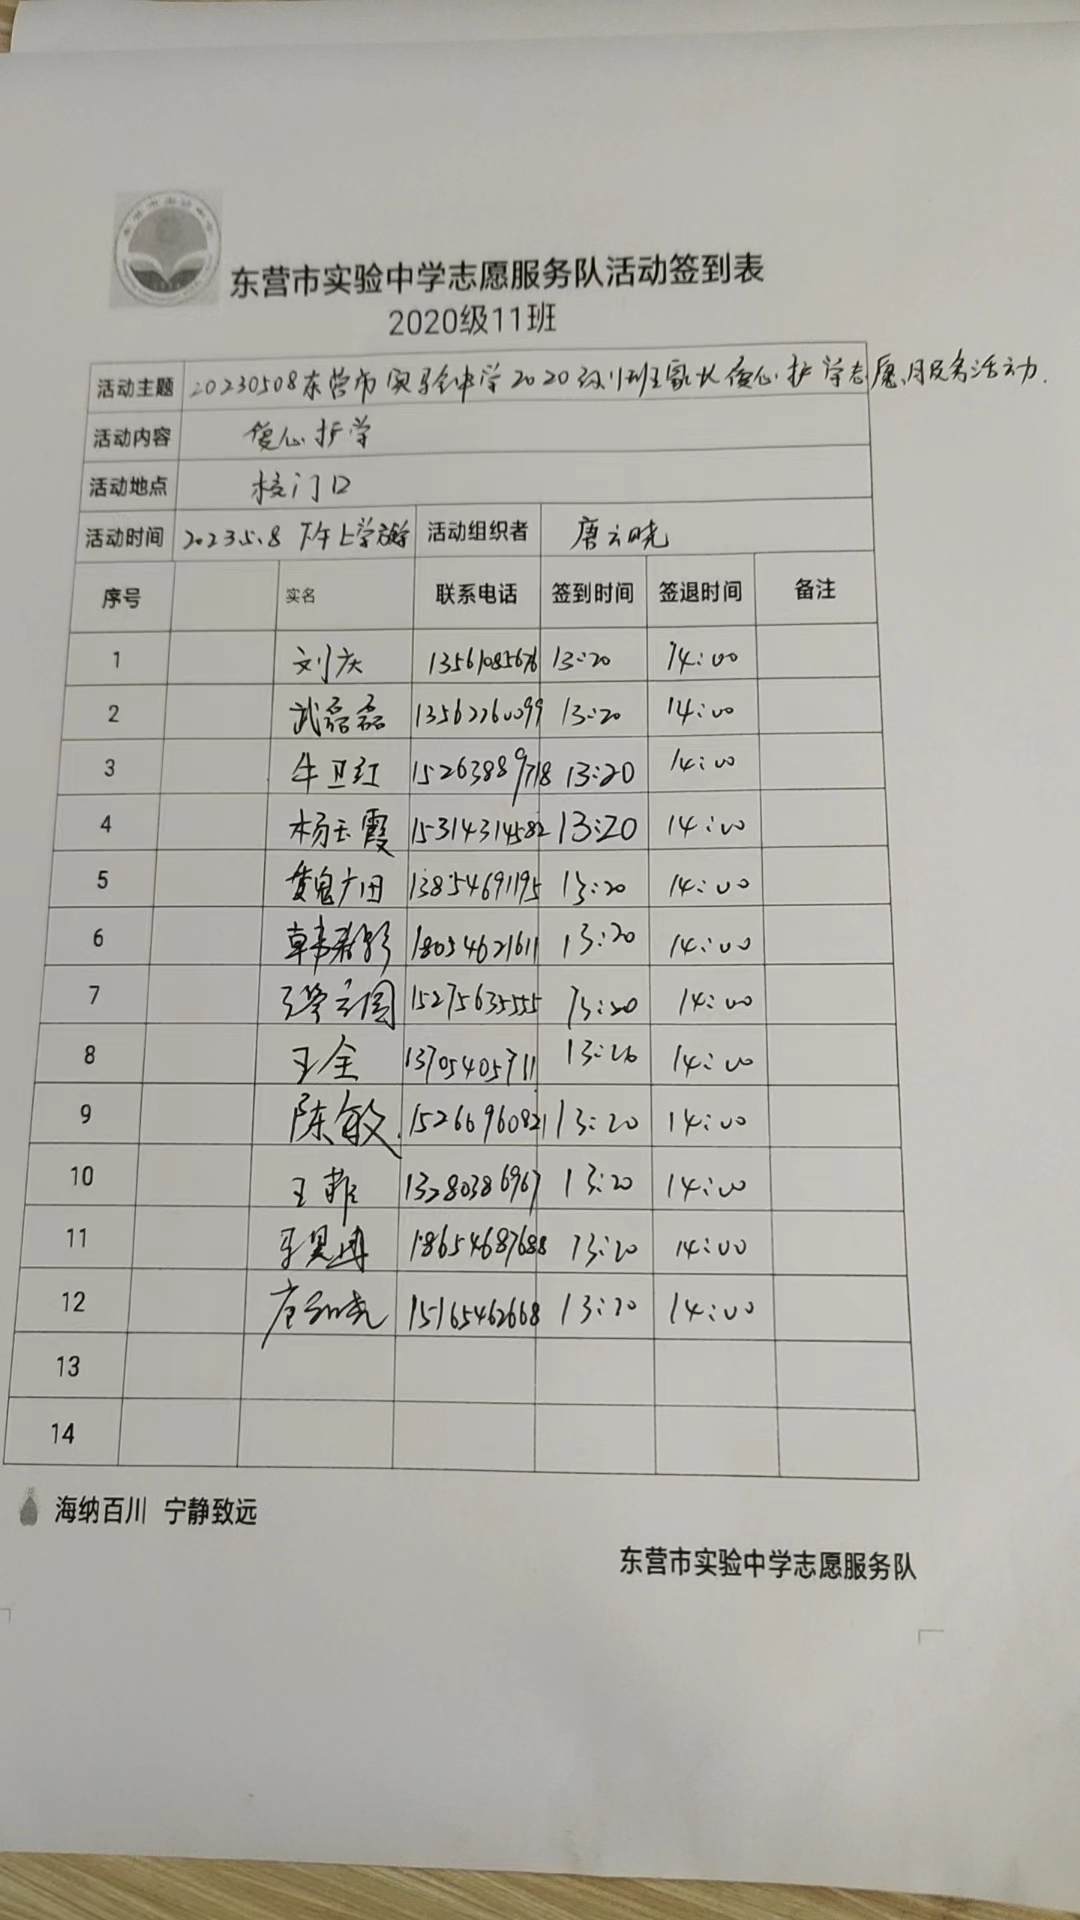 东营市实验中学志愿服务队活动签到表
2020级11班
活动主题 20230508东营市实验中学2020级11班家长爱心护学志愿服务活动.
活动内容 爱心护学
活动地点 校门口
活动时间 2023.5.8 下午上学 活动组织者 唐云晓
序号 实名 联系电话 签到时间 签退时间 备注
1 刘庆 13561085676 13:20 14:00
2 武磊磊 13562260099 13:20 14:00
3 牛卫红 15263889718 13:20 14:00
4 杨玉霞 15314314582 13:20 14:00
5 广田 13854691195 13:20 14:00
6 韩 18054621611 13:20 14:00
7 15275635555 13:20 14:00
8 王全 13705405711 13:20 14:00
9 陈敏 15266960821 13:20 14:00
10 王菲 13280386967 13:20 14:00
11 18654687688 13:20 14:00
12 唐云晓 15165462668 13:20 14:00
13
14
海纳百川 宁静致远
东营市实验中学志愿服务队